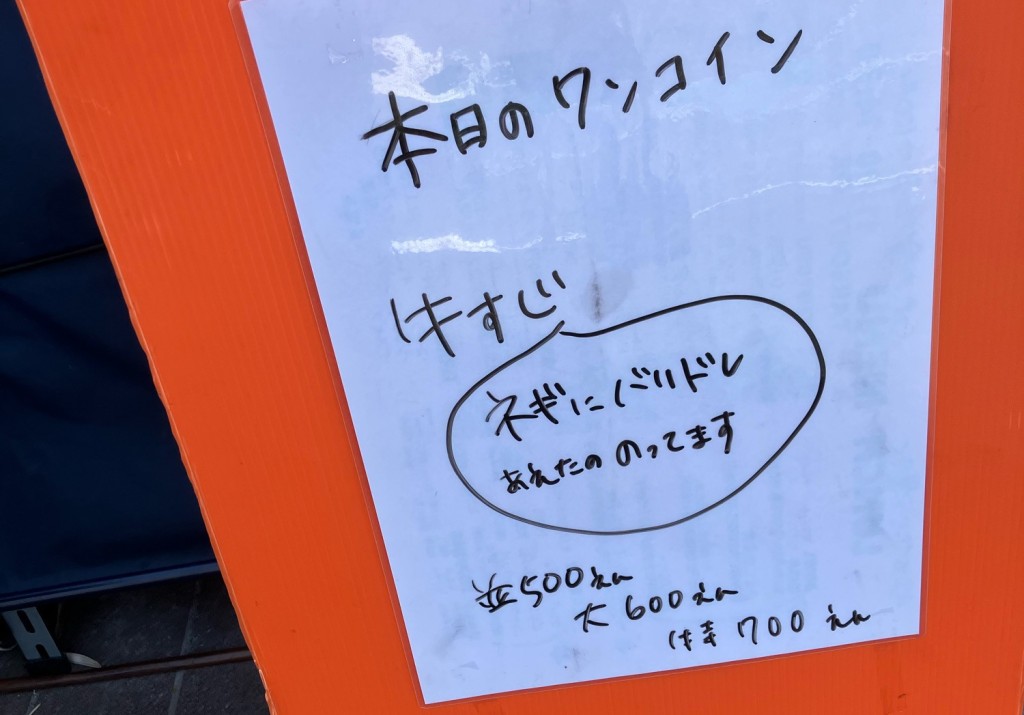 本日のワンコイン
牛すじ
ネギにバリドレ
あえたの のってます
並500えん
大600えん
特 700えん